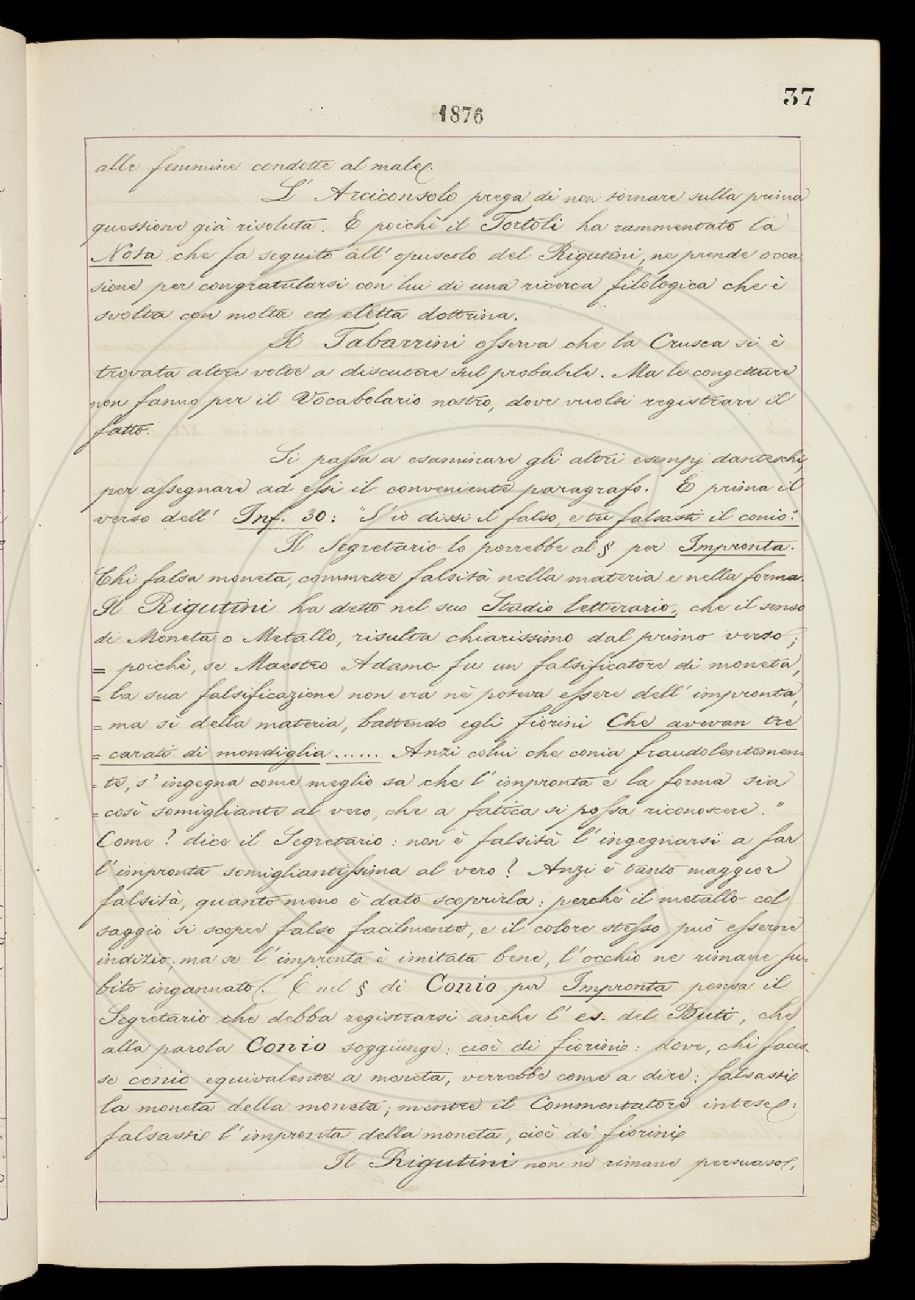 37
1876
alle femmine condotte al male.
L' Arciconsolo prega di non tornare sulla prima
questione già risoluta. E poichè il Tortoli ha rammentato la
Nota che fa seguito all' opuscolo del Rigutini, ne prende occa-
sione per congratularsi con lui di una ricerca filologica che è
svolta con molta ed eletta dottrina.
Il Tabarrini osserva che la Crusca si è
trovata altre volte a discutere sul probabile. Ma le congetture
non fanno per il Vocabolario nostro, dove vuolsi registrare il
fatto.
Si passa a esaminare gli altri esempj danteschi,
per assegnare ad essi il conveniente paragrafo. E prima il
verso dell' Inf. 30: "S'io dissi il falso, e tu falsasti il conio."
Il Segretario lo porrebbe al § per Impronta.
Chi falsa moneta, commette falsità nella materia e nella forma.
Il Rigutini ha detto nel suo Studio letterario, che il senso
di Moneta o Metallo, risulta chiarissimo dal primo verso;
= poichè, se Maestro Adamo fu un falsificatore di moneta,
= la sua falsificazione non era nè poteva essere dell' impronta,
= ma sì della materia, battendo egli fiorini Che avevan tre
= carati di mondiglia ...... Anzi colui che conia fraudolentemen-
= te, s' ingegna come meglio sa che l' impronta e la forma sia
= così somigliante al vero, che a fatica si possa riconoscere."
Come? dice il Segretario: non è falsità l' ingegnarsi a far
l' impronta somigliantissima al vero? Anzi è tanto maggior
falsità, quanto meno è dato scoprirla: perchè il metallo col
saggio si scopre falso facilmente, e il colore stesso può esserne
indizio; ma se l' impronta è imitata bene, l' occhio ne rimane su-
bito ingannato. E nel § di Conio per Impronta pensa il
Segretario che debba registrarsi anche l' es. del Buti, che
alla parola Conio soggiunge: cioè di fiorini: dove, chi faces-
se conio equivalente a moneta, verrebbe come a dire: falsasti
la moneta della moneta; mentre il Commentatore intese:
falsasti l' impronta della moneta, cioè de' fiorini
Il Rigutini non ne rimane persuaso;